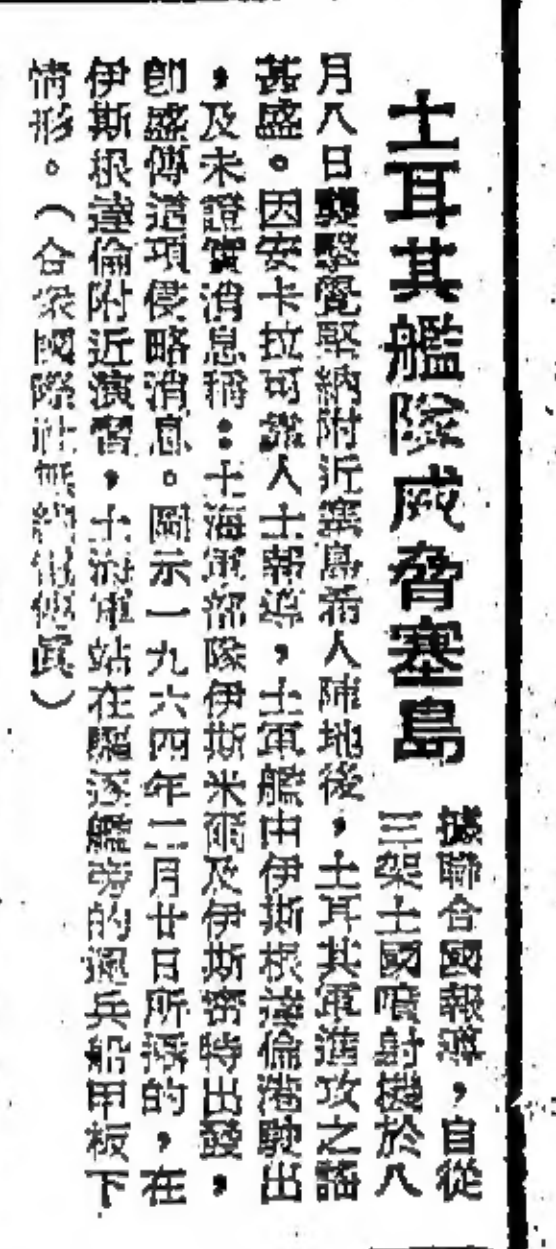 土耳其艦隊威脅塞島
據聯合國報導，自從
三架土國噴射機於八
月八日襲擊覺堅納附近塞島希人陣地後，土耳其軍進攻之謠
甚盛。因安卡拉可靠人士報導，土軍艦由伊斯根達倫港駛出
，及未證實消息稱：土海軍部隊伊斯米爾及伊斯密時出發，
卽盛傳這項侵略消息。圖示一九六四年二月廿日所攝的，在
伊斯根達倫附近演習，土海軍站在驅逐艦旁的運兵船甲板下
情形。（合衆國際社無綫電傳眞）